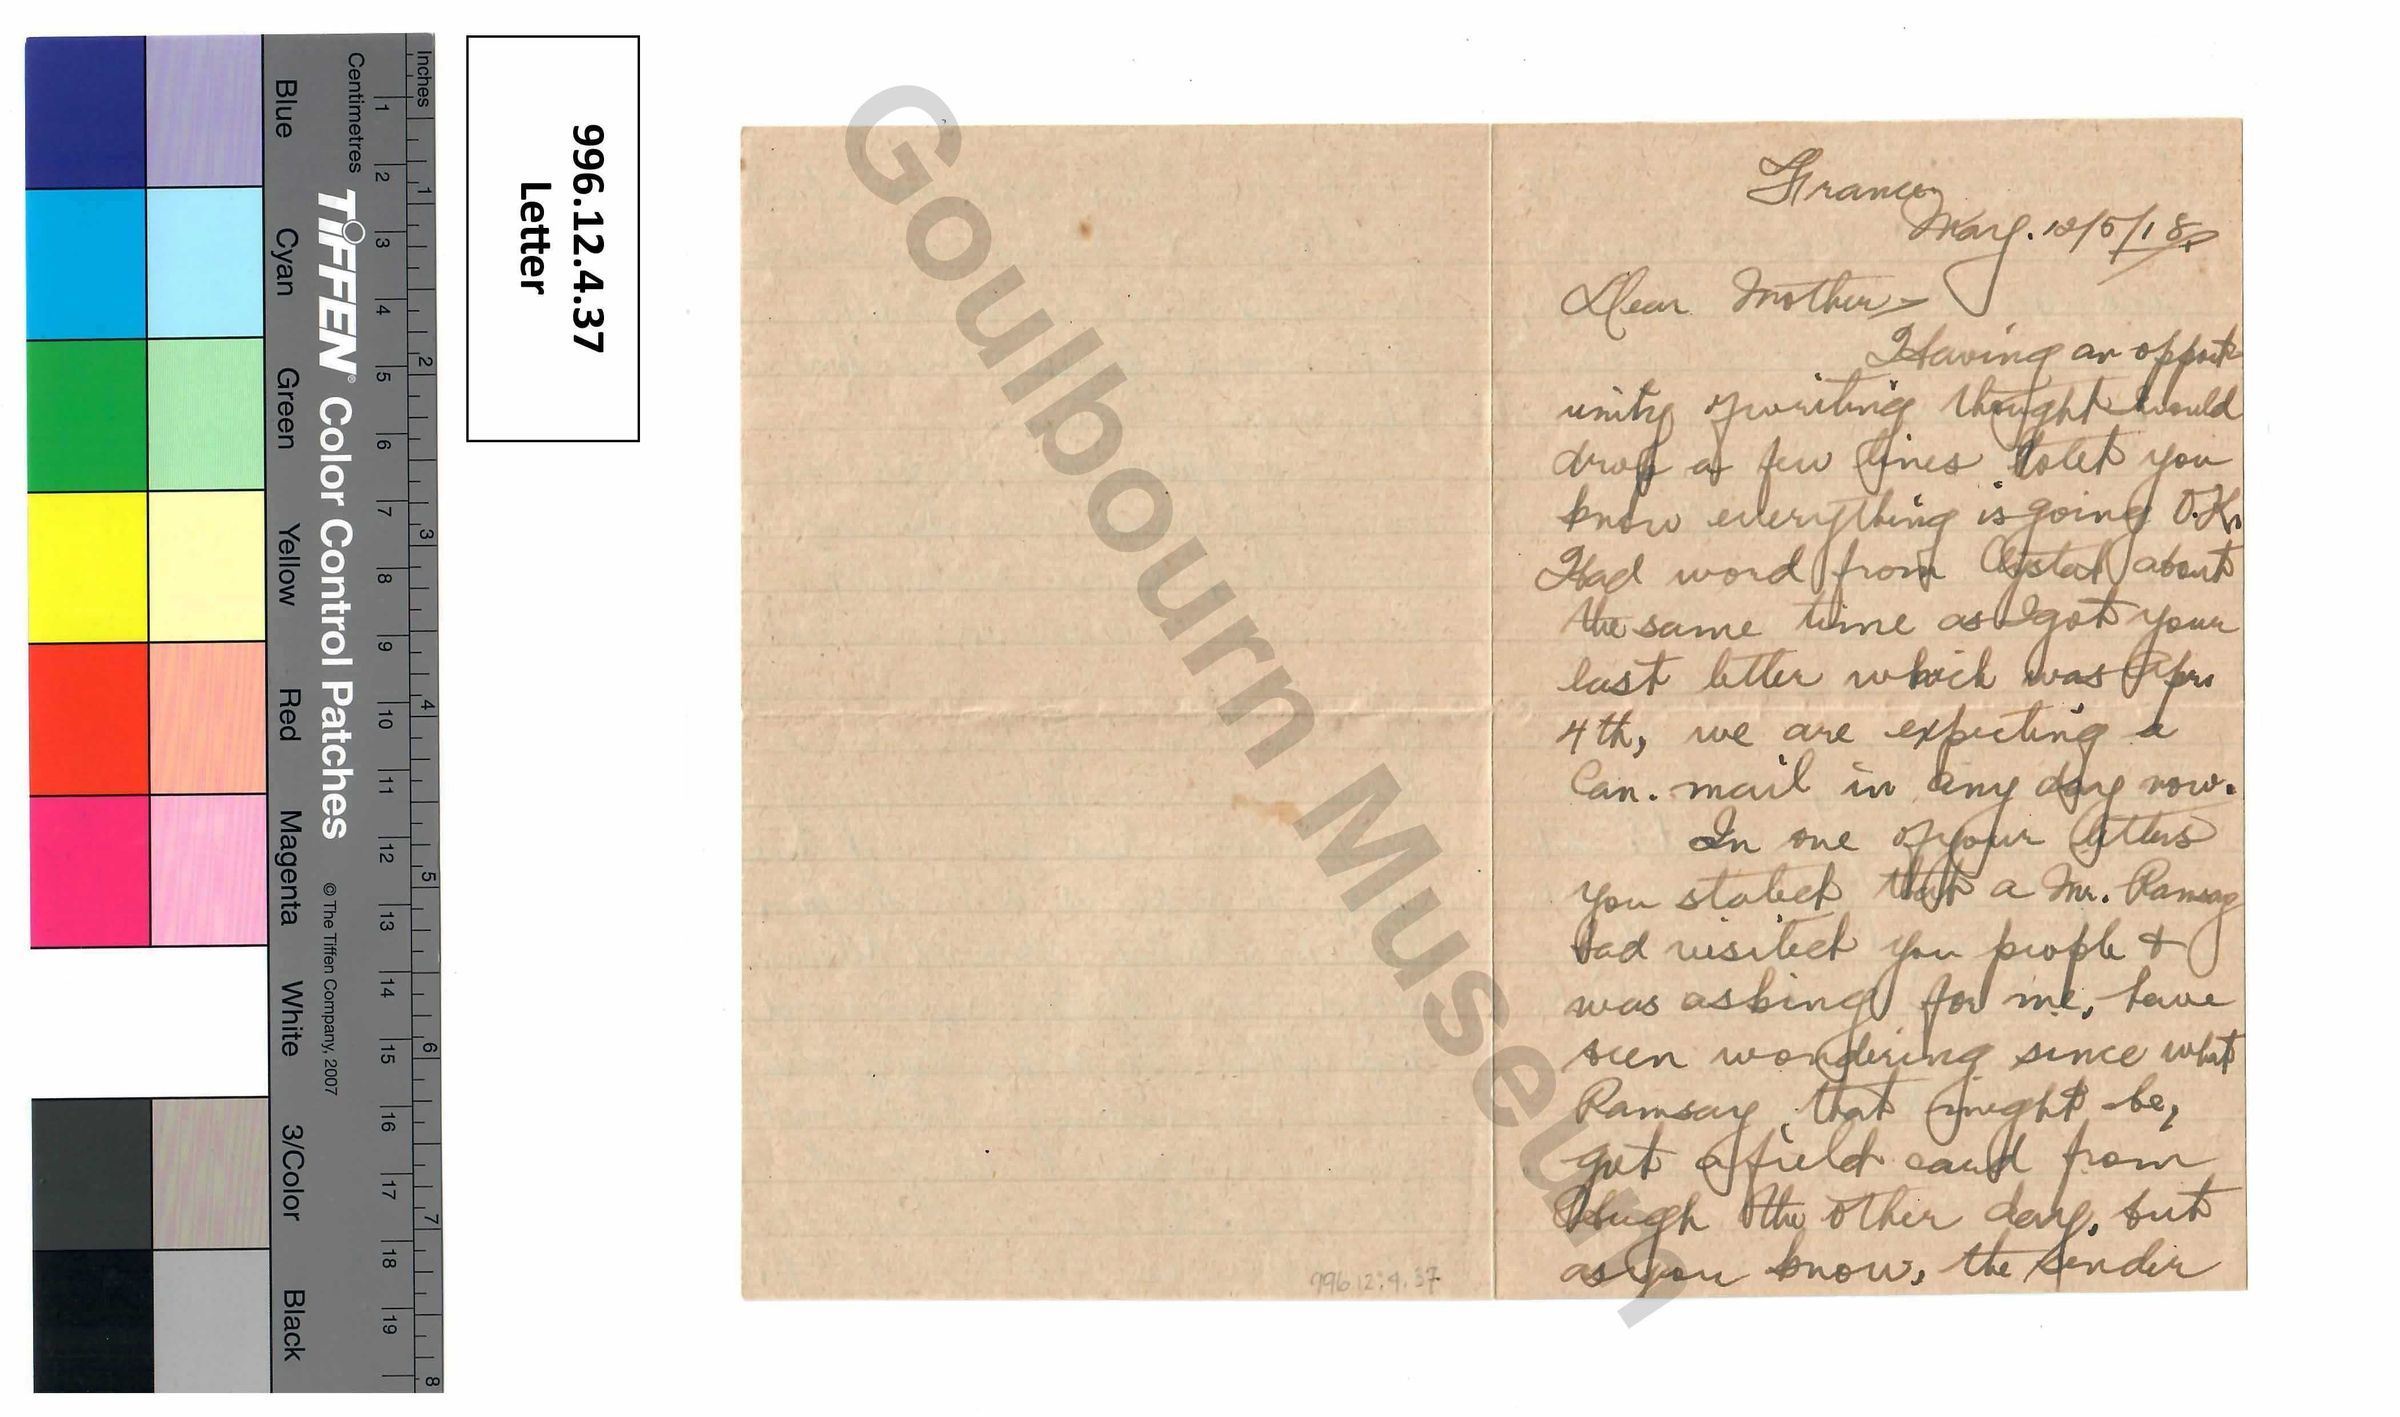 Inches
Centimetres
Blue
Cyan
Green
Yellow
Red
Magenta
White
3/Color
Black
TIFFEN® Color Control Patches
© The Tiffen Company, 2007
1 2 3 4 5 6 7 8 9 10 11 12 13 14 15 16 17 18 19
1 2 3 4 5 6 7 8
996.12.4.37
Letter
Goulbourn Museum
996.12.4.37
France
May. 12/5/18.
Dear Mother
Having an opport
unity of writing thought I would
drop a few lines to let you
know everything is going O.K.
Had word from about
the same time as I got your
last letter which was Apri
4th, we are expecting a
Can. mail in any day now.
In one of your letters
you stated that a Mr. Ramsay
had visited you people &
was asking for me, have
been wondering since what
Ramsay that might be,
got a field card from
Hugh the other day, but
as you know, the sender